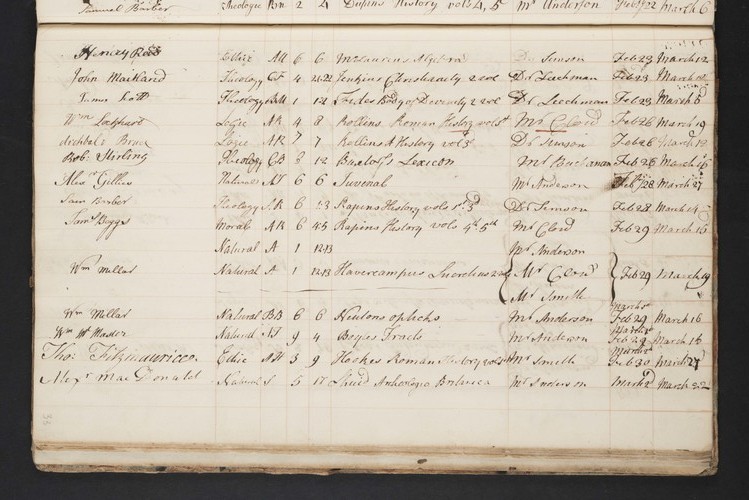 Samuel Barber Theologie 2 4 Dupins History vols 4, 5 Mr Anderson Feb 22 March 6
Henry Ethic AU 6 6 McLaurens Algebra Dr Simson Feb 23 March 12
John Maitland Theology CF 4 21.22 Jenkins Christianity 2 vol Dr Leechman Feb 23 March
James Theology 1 12 Body of Devinity 2 vol Dr Leechman Feb 23 March 5
Wm Lockhart Logic AK 4 8 Rollins Roman History vol Mr Clow Feb 26 March 19
Archibald Bruce Logic AK 7 7 Rollins A History vol 3d Dr Simson Feb 26 March 12
Rob: Stirling Theology CB 8 12 Buxtorfs Lexicon Mr Buchanan Feb 26 March 16
Alexr Gillies Natural AT 6 6 Juvenal Mr Anderson Feb 28 March 27
Sam Barber Theology K 6 2.3 Rapins History vols 3d Dr Simson Feb 28 March 14
Saml Boggs Moral AK 6 4.5 Rapins History vols 4th 5th Mr Clow Feb 29 March 16
Natural A 12.13 Mr Anderson
Wm Millar Natural A 1 12.13 Havercampus Lucretius 2 Mr Clow Feb 29 March 19
Mr Smith
Wm Millar Natural BB 6 6 Neutons opticks Mr Anderson March Feb 29 March 16
Wm Mc Master Natural AT 9 4 Boyles Tracts Mr Anderson March Feb 29 March 16
Tho: Fitzmaurice Ethic AH 3 9 Hookes Roman History vol Mr Smith March Feb 30 March 27
Alexr MacDonald Natural 5 17 Archæologia Britanica Mr Anderson March 2d March 22